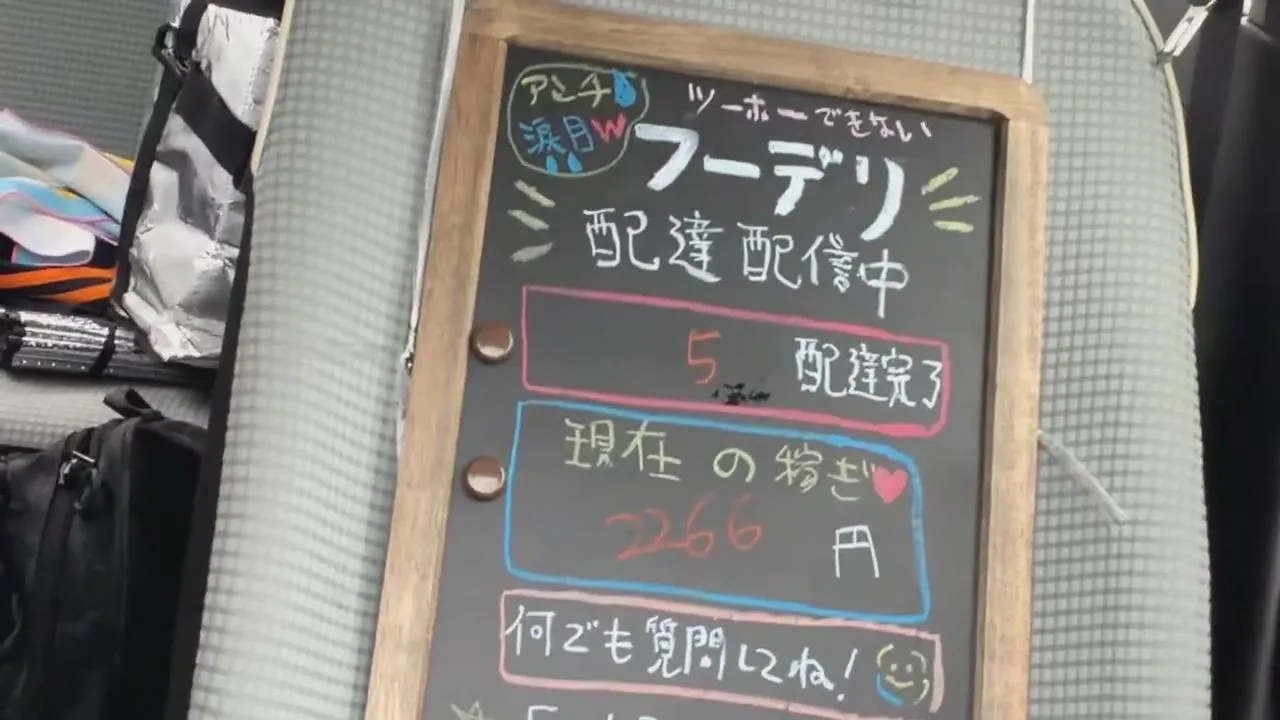 アンチ
涙目w
ツーホーできない
フーデリ
配達配信中
5 配達完了
現在の稼ぎ
2266円
何でも質問してね!